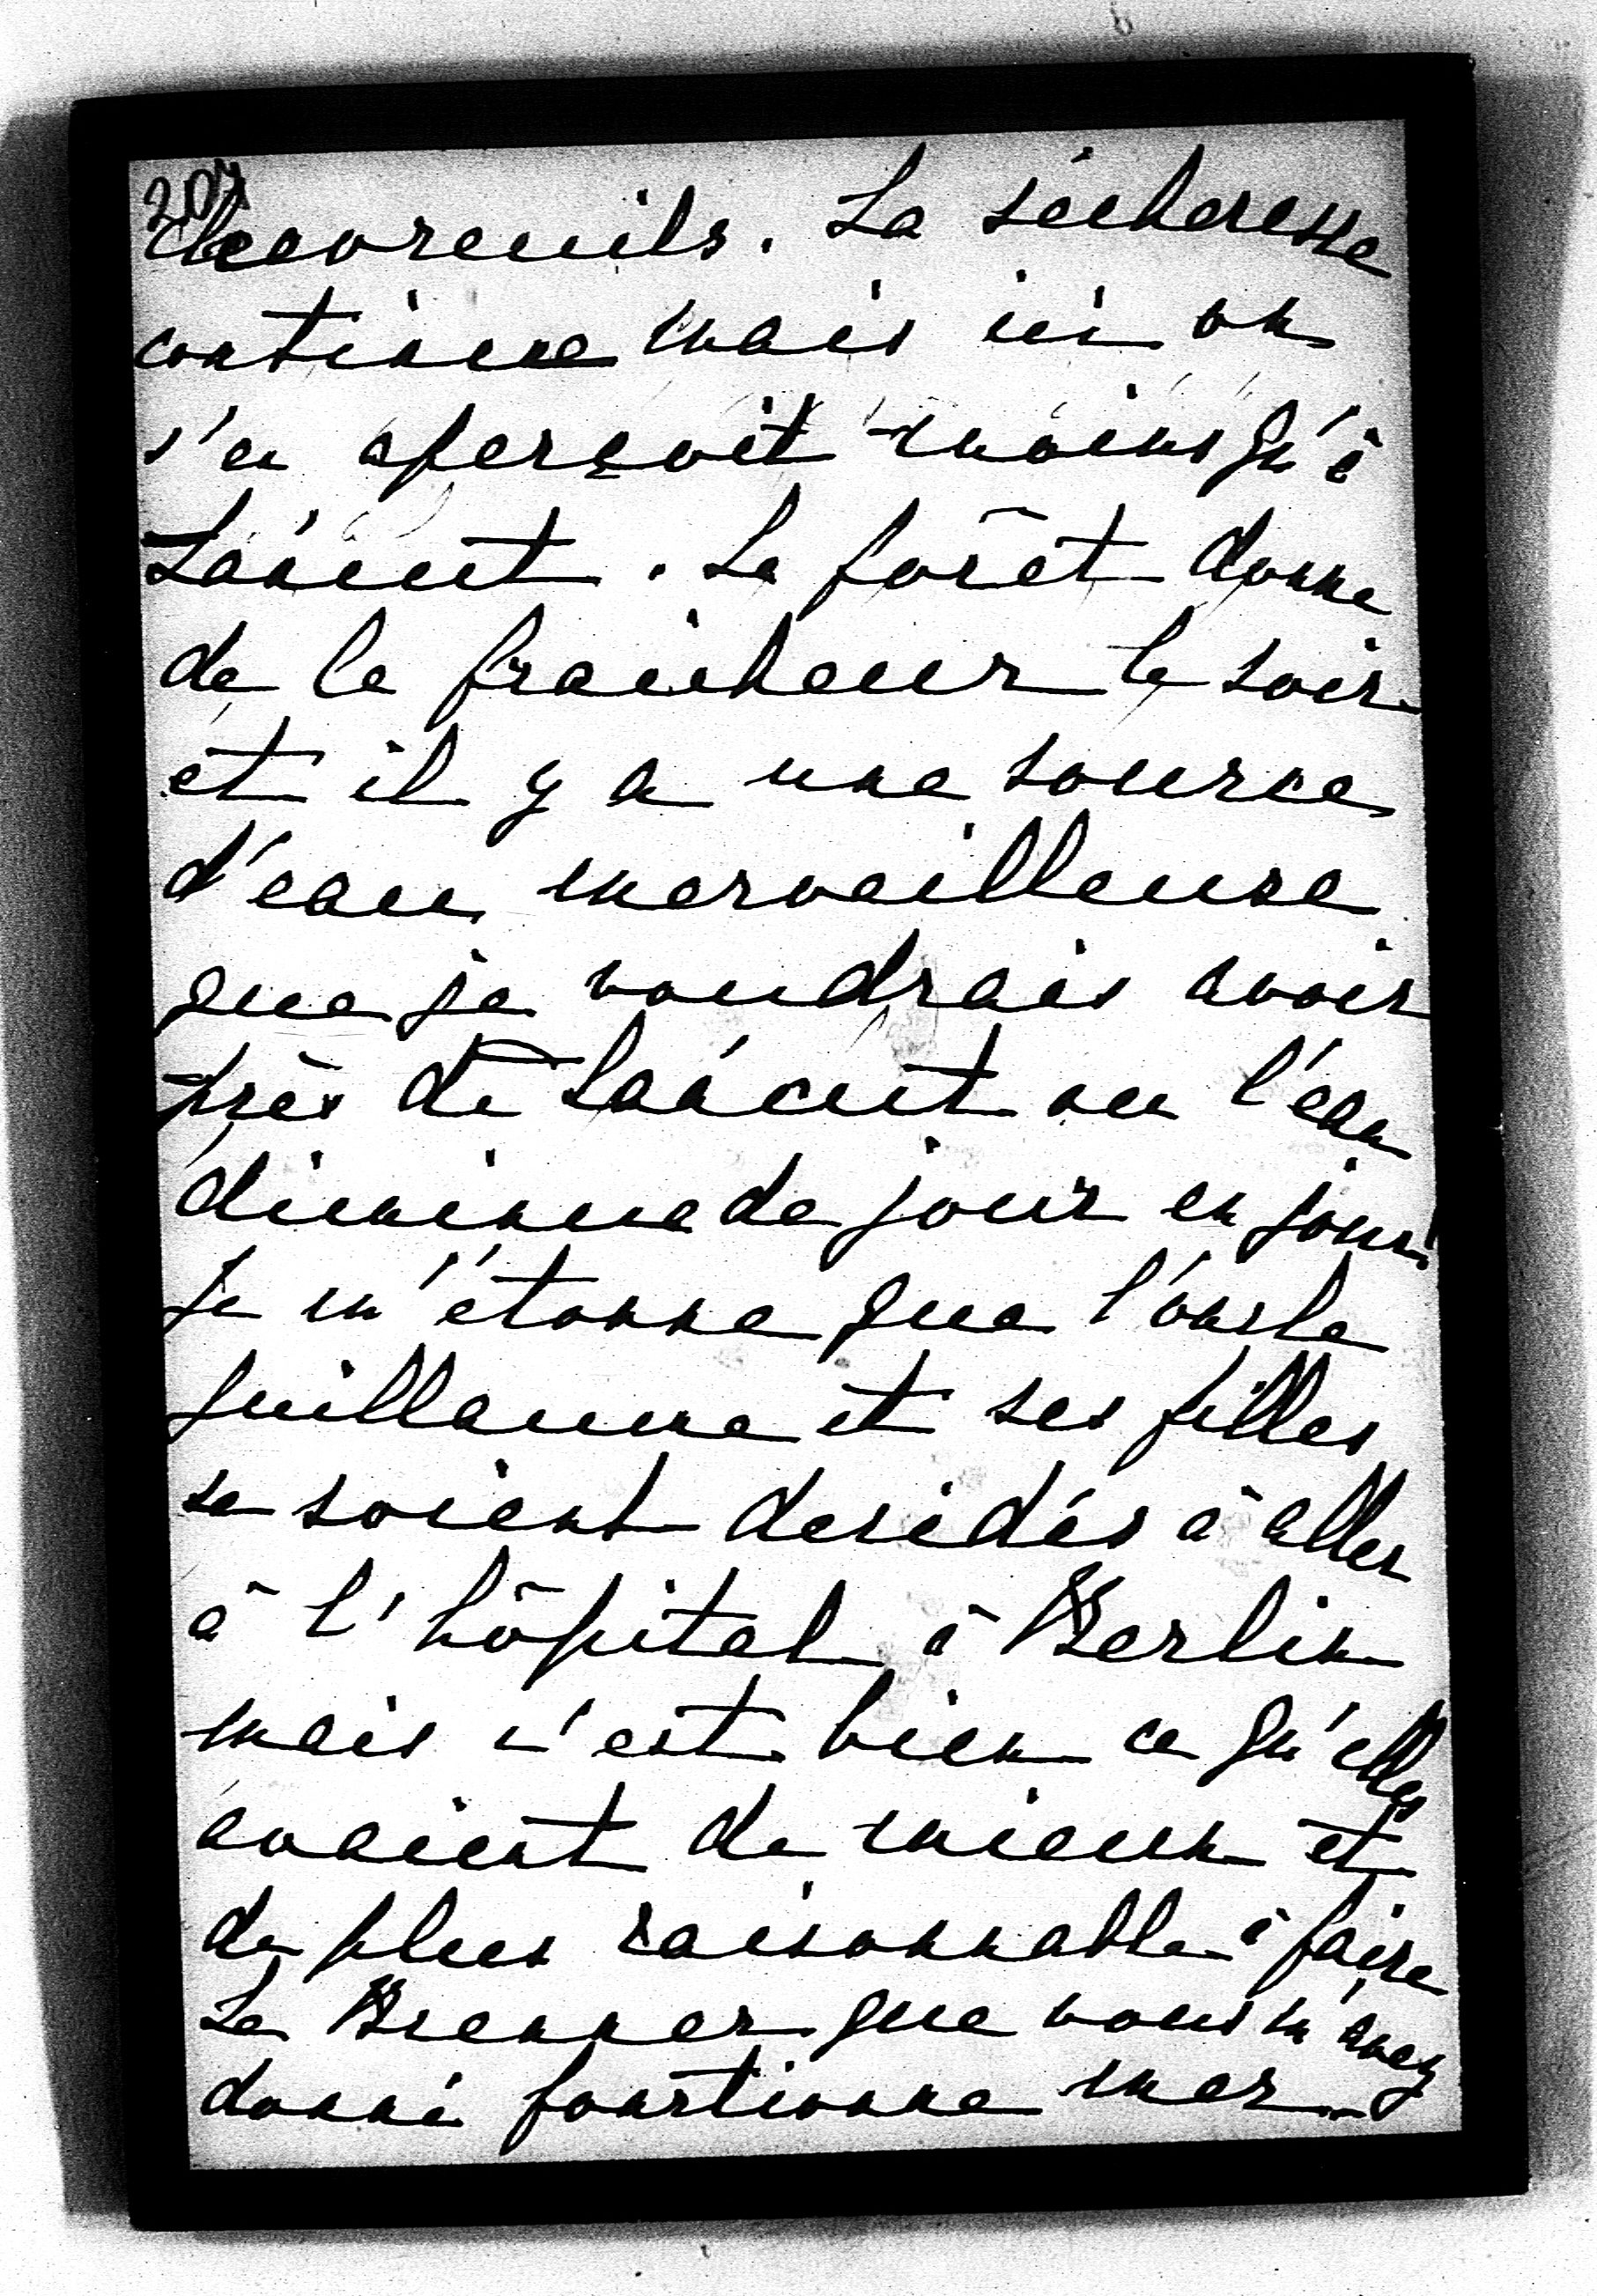 207
chevreuils. La sécheresse
continue mais ici on
s'en aperçoit moins qu'à
Łańcut. La forêt donne
de la fraicheur le soir
et il y a une source
d'eau merveilleuse
que je voudrais avoir
près de Łańcut ou l'eau
diminue de jour en jour!
Je m'étonne que l'oncle
Guillaume et ses filles
se soient decidés à aller
à l'hôpital à Berlin
mais c'est bien ce qu'elles
avaient de mieux et
de plus raisonnable à faire
Le Brenner que vous m'avez
donné fonctionne mer-